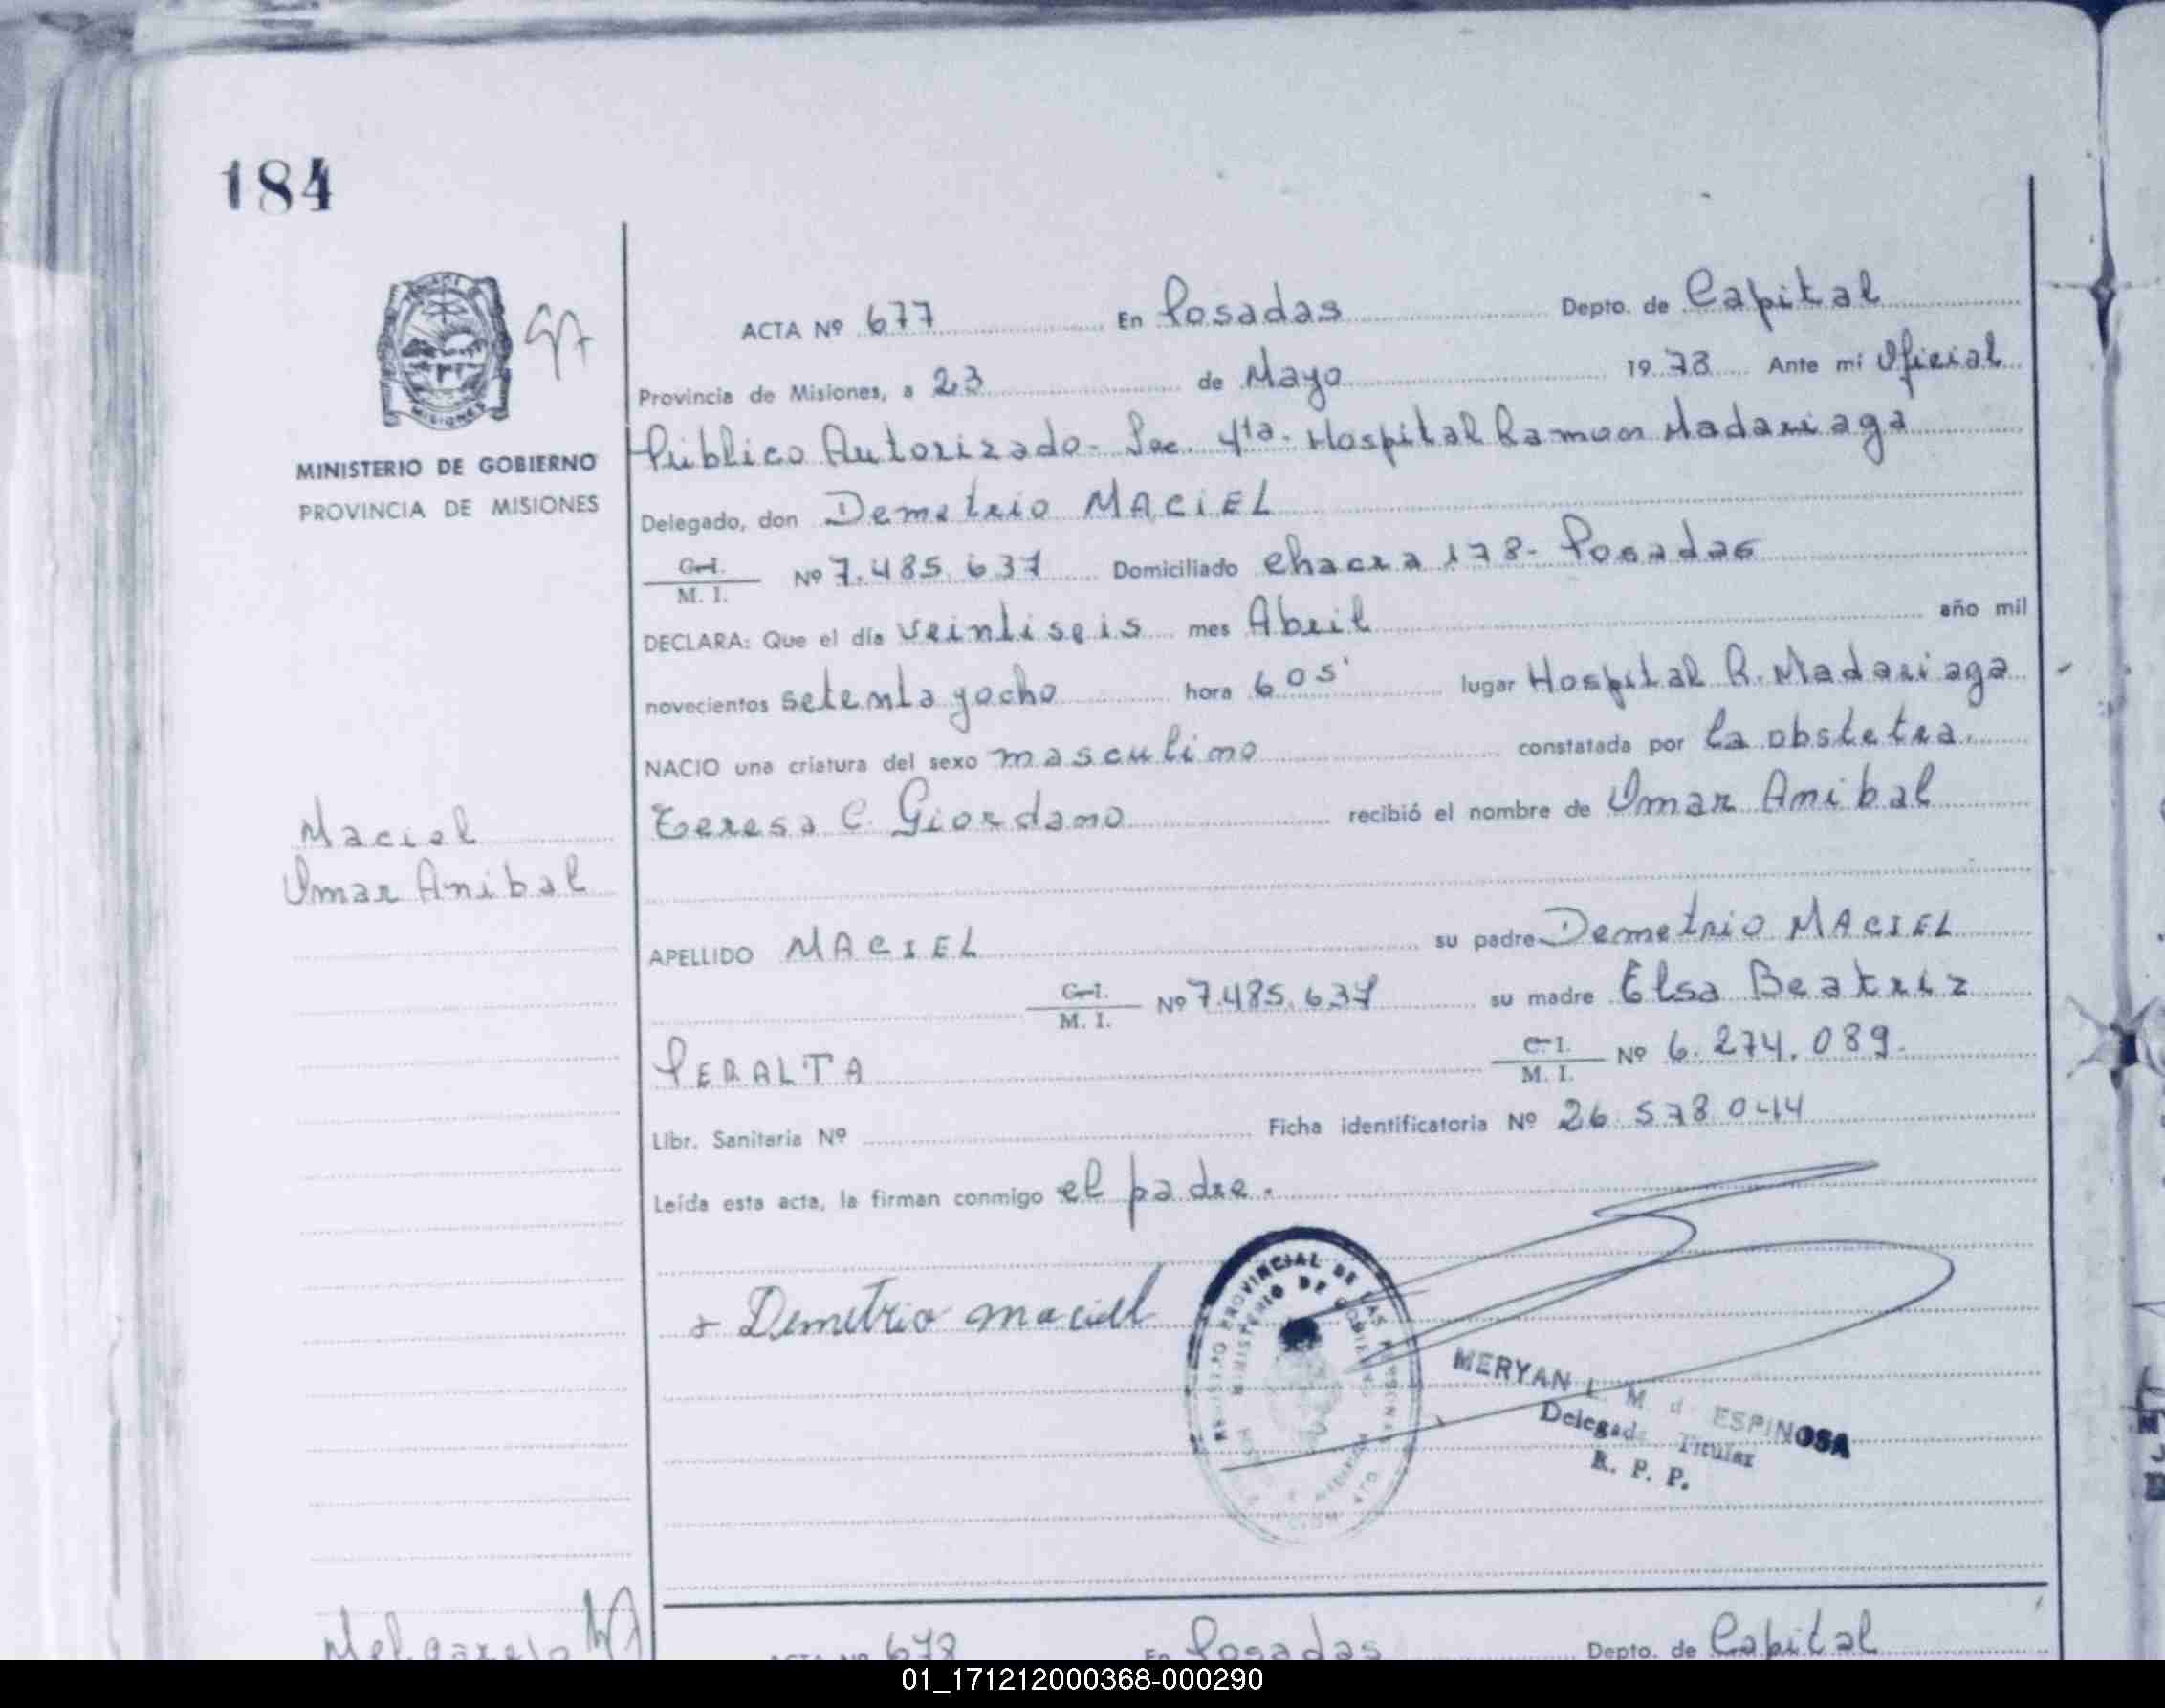 184
ACTA Nº 677 En Posadas Depto. de Capital
Provincia de Misiones, a 23 de Mayo 1978 Ante mí Oficial
Público Autorizado - Sec. 4ta. Hospital Ramon Madariaga
MINISTERIO DE GOBIERNO
PROVINCIA DE MISIONES
Delegado, don Demetrio MACIEL
C.I.
M. I. Nº 7.485.637 Domiciliado Chacra 178 - Posadas
DECLARA: Que el día veintiseis mes Abril año mil
novecientos setenta y ocho hora 6 05' lugar Hospital R. Madariaga
NACIO una criatura del sexo masculino constatada por la obstetra.
Teresa C. Giordano recibió el nombre de Omar Anibal
Maciel
Omar Anibal
APELLIDO MACIEL su padre Demetrio MACIEL
C.I.
M. I. Nº 7.485.637 su madre Elsa Beatriz
PERALTA C.I.
M. I. Nº 6.274.089.
Libr. Sanitaria Nº Ficha identificatoria Nº 26.578.044
Leída esta acta, la firman conmigo el padre.
Demetrio maciel
REGISTRO PROVINCIAL DE LAS PERSONAS
MINISTERIO DE GOBIERNO
MERYAN L. M d ESPINOSA
Delegada Titular
R. P. P.
Melgarejo
ACTA Nº 678 En Posadas Depto. de Capital
01_171212000368-000290